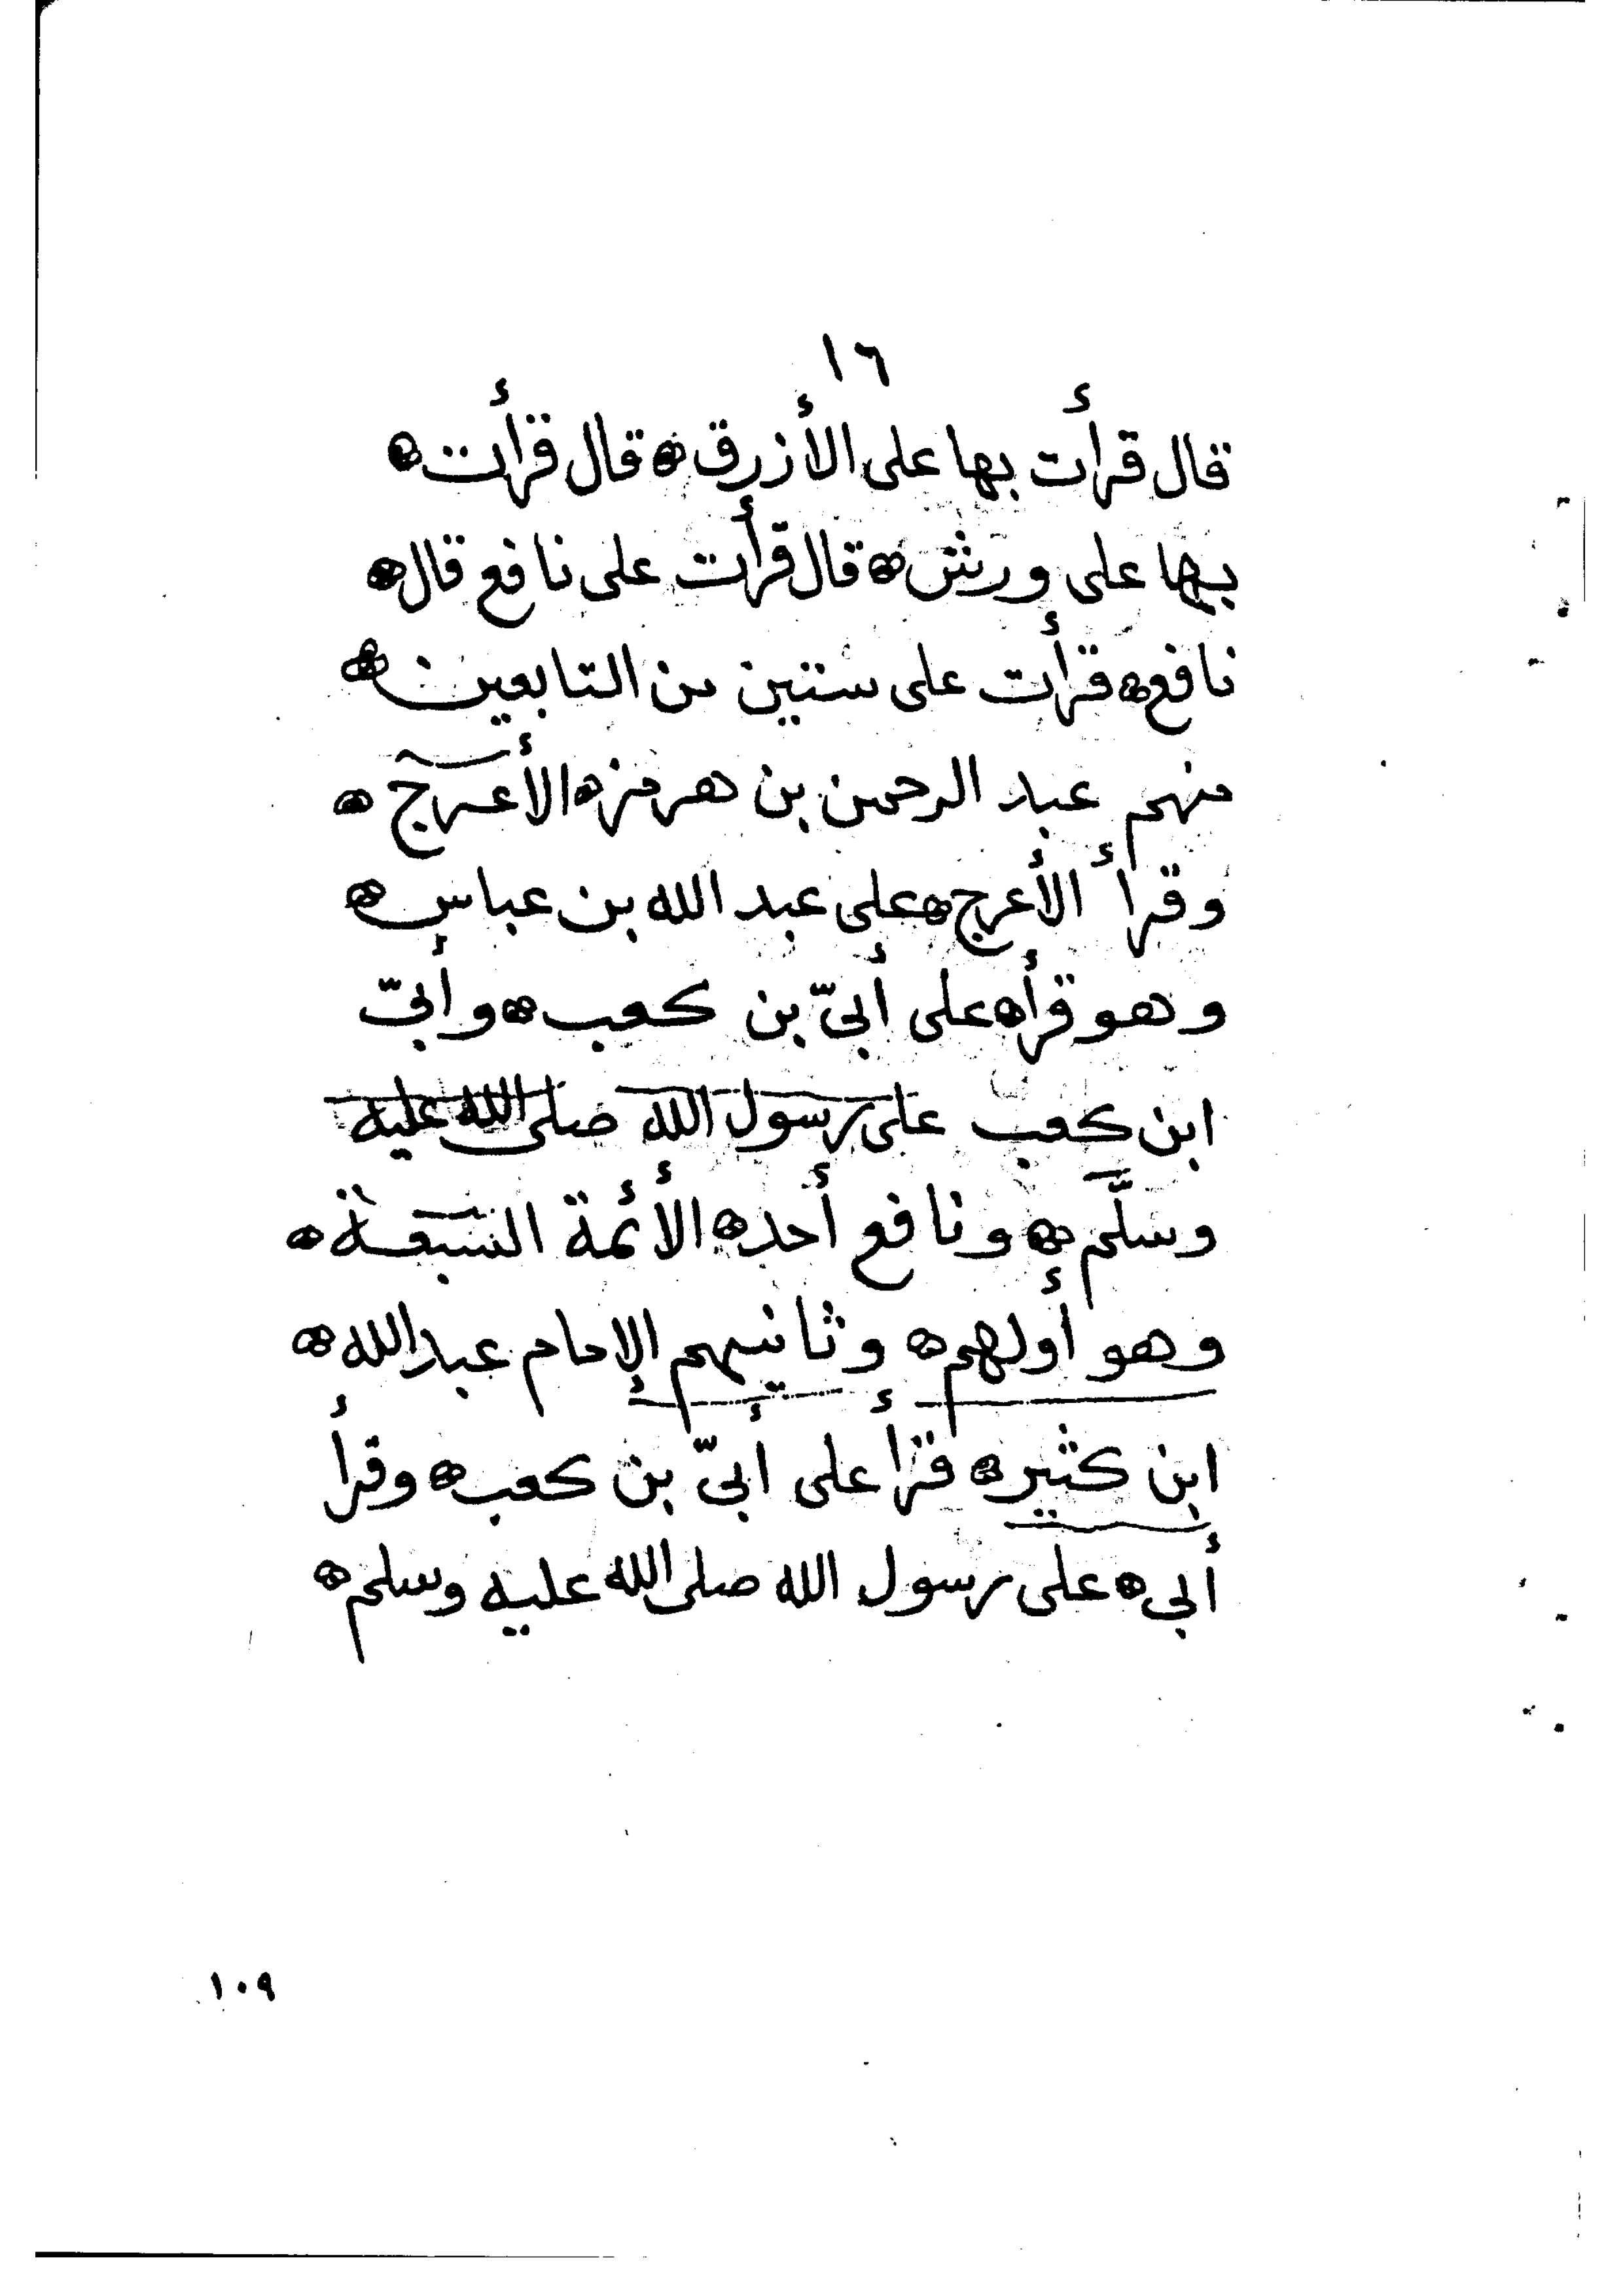 ١٦
قال قرأت بها على الأزرق ۞ قال قرأت ۞
بها على ورش ۞ قال قرأت على نافع قال ۞
نافع ۞ قرأت على ستين من التابعين ۞
منهم عبد الرحمن بن هرمز ۞ الأعرج ۞
وقرأ الأعرج ۞ على عبد الله بن عباس ۞
وهو قرأ ۞ على أبيّ بن كعب ۞ وأبيّ
ابن كعب على رسول الله صلى الله عليه
وسلَّم ۞ ونافع أحد ۞ الأئمة السبعة ۞
وهو أولهم ۞ وثانيهم الإمام عبد الله ۞
ابن كثير ۞ قرأ على أبيّ بن كعب ۞ وقرأ
أبي ۞ على رسول الله صلى الله عليه وسلم ۞
١٠٩